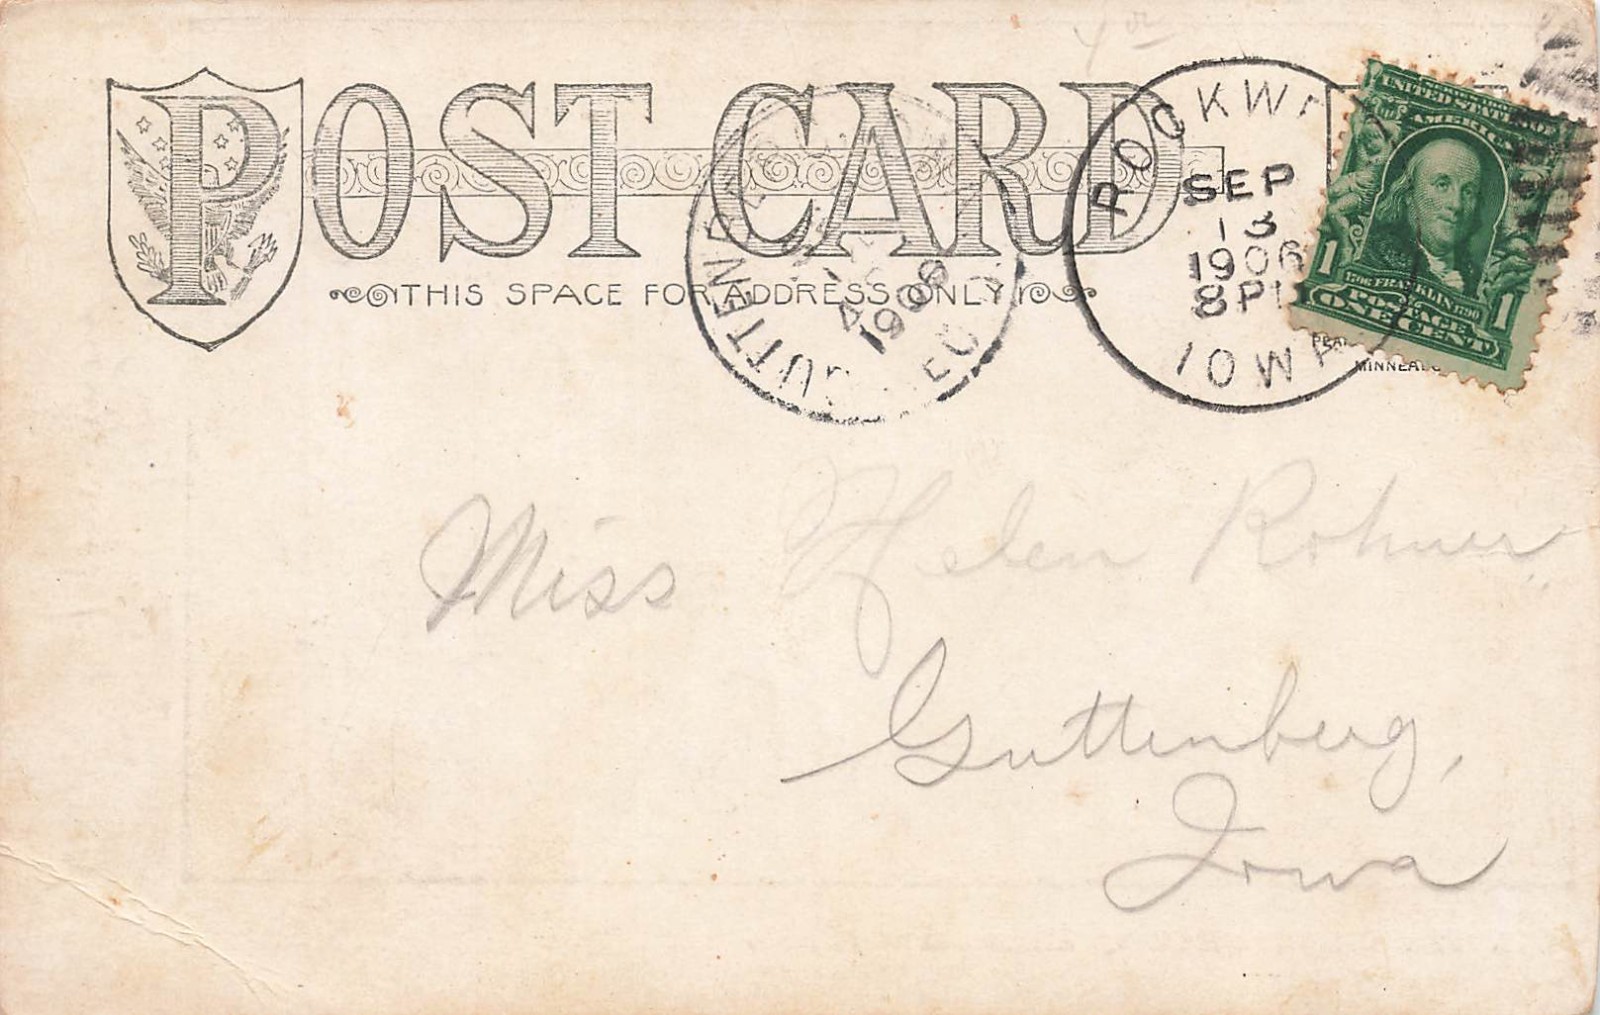 POST CARD
THIS SPACE FOR ADDRESS ONLY
ROCKW
SEP
13
1906
8 P
IOWA
GUTTENB
1906
REC'D.
UNITED STATES OF
AMERICA
1
1706 FRANKLIN 1790
1
POSTAGE
ONE CENT
MINNEA
Miss Helen Rohner
Guttenberg,
Iowa